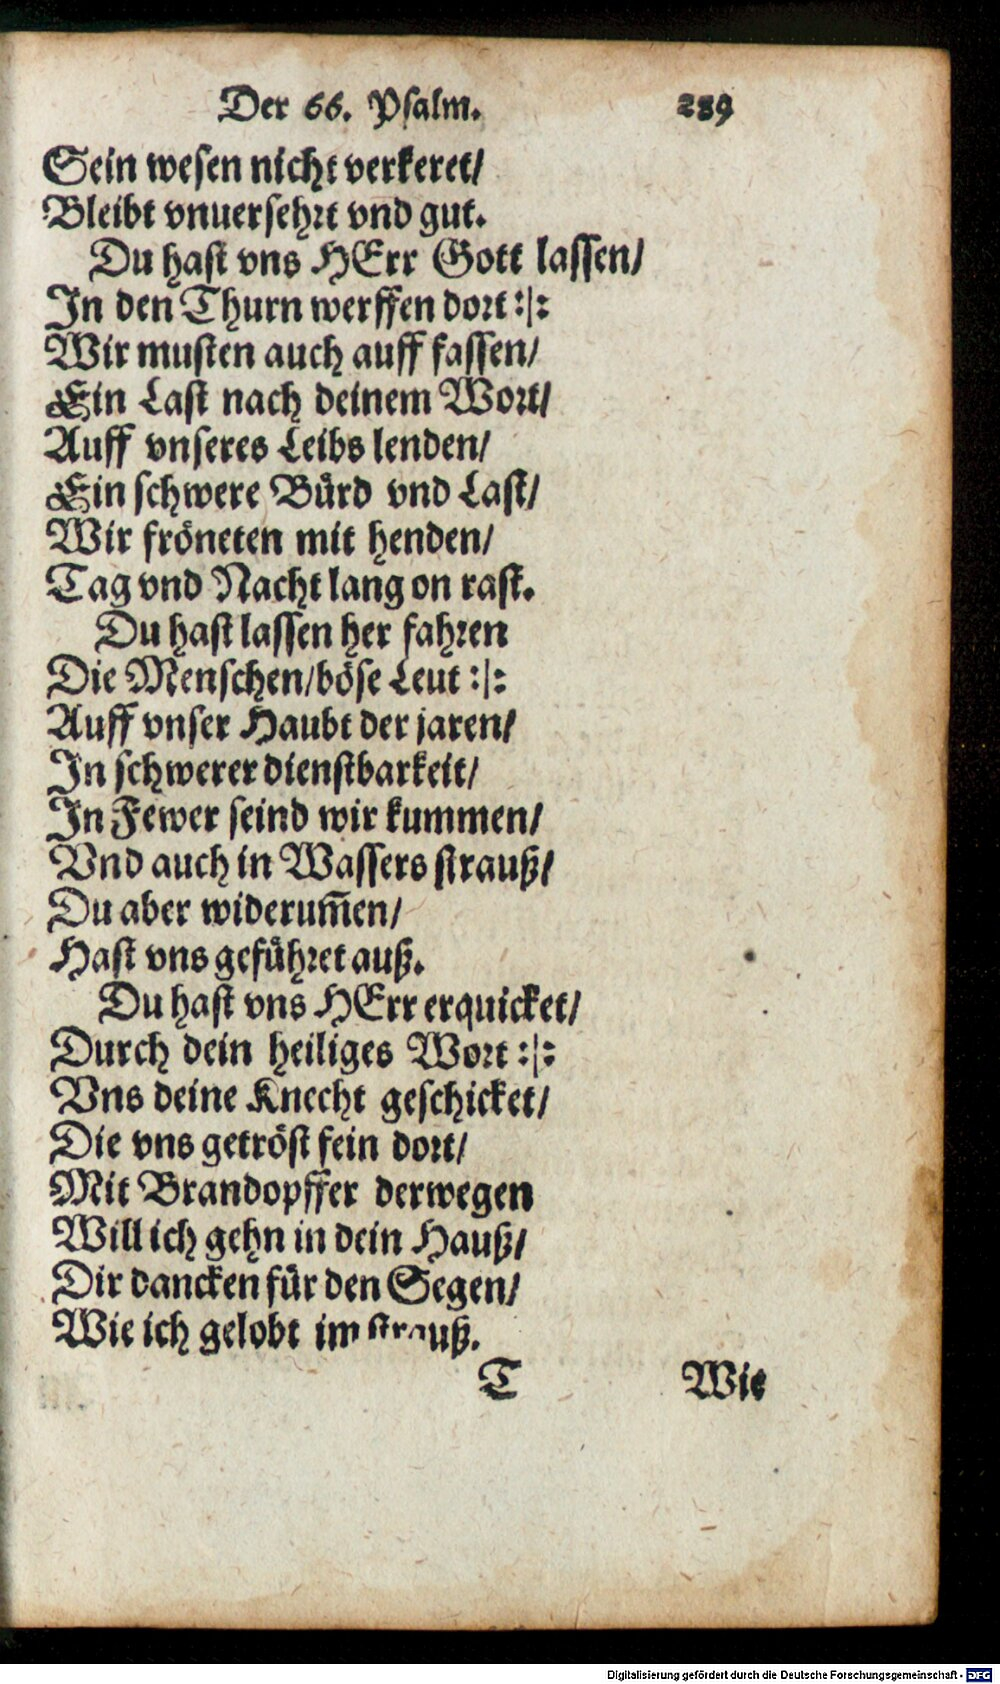 Der 66. Psalm. 289
Sein wesen nicht verkeret/
Bleibt vnuersehrt vnd gut.
Du hast vns HErr Gott lassen/
In den Thurn werffen dort :|:
Wir musten auch auff fassen/
Ein Last nach deinem Wort/
Auff vnseres Leibs lenden/
Ein schwere Bürd vnd Last/
Wir fröneten mit henden/
Tag vnd Nacht lang on rast.
Du hast lassen her fahren
Die Menschen/böse Leut :|:
Auff vnser Haubt der jaren/
In schwerer dienstbarkeit/
In Fewer seind wir kummen/
Vnd auch in Wassers strauß/
Du aber widerum̃en/
Hast vns geführet auß.
Du hast vns HErr erquicket/
Durch dein heiliges Wort :|:
Vns deine Knecht geschicket/
Die vns getröst fein dort/
Mit Brandopffer derwegen
Will ich gehn in dein Hauß/
Dir dancken für den Segen/
Wie ich gelobt im strauß.
T Wie
Digitalisierung gefördert durch die Deutsche Forschungsgemeinschaft - DFG